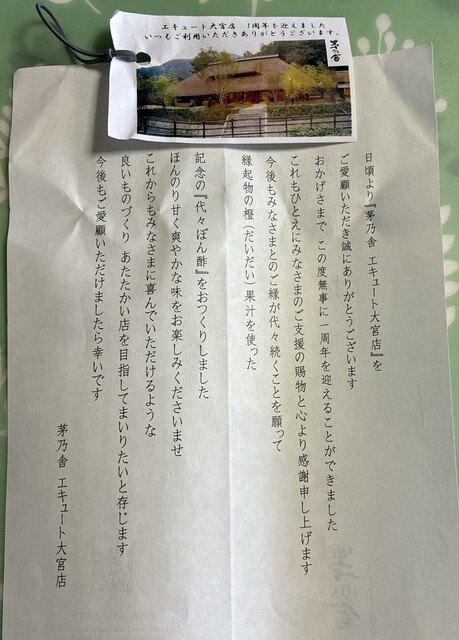 エキュート大宮店 1周年を迎えました
いつもご利用いただきありがとうございます。
茅乃舎
日頃より『茅乃舎 エキュート大宮店』を
ご愛顧いただき誠にありがとうございます
おかげさまで この度無事に一周年を迎えることができました
これもひとえにみなさまのご支援の賜物と心より感謝申し上げます
今後もみなさまとのご縁が代々続くことを願って
縁起物の橙(だいだい)果汁を使った
記念の『代々ぽん酢』をおつくりしました
ほんのり甘く爽やかな味をお楽しみくださいませ
これからもみなさまに喜んでいただけるような
良いものづくり あたたかい店を目指してまいりたいと存じます
今後もご愛顧いただけましたら幸いです
茅乃舎 エキュート大宮店
茅乃舎